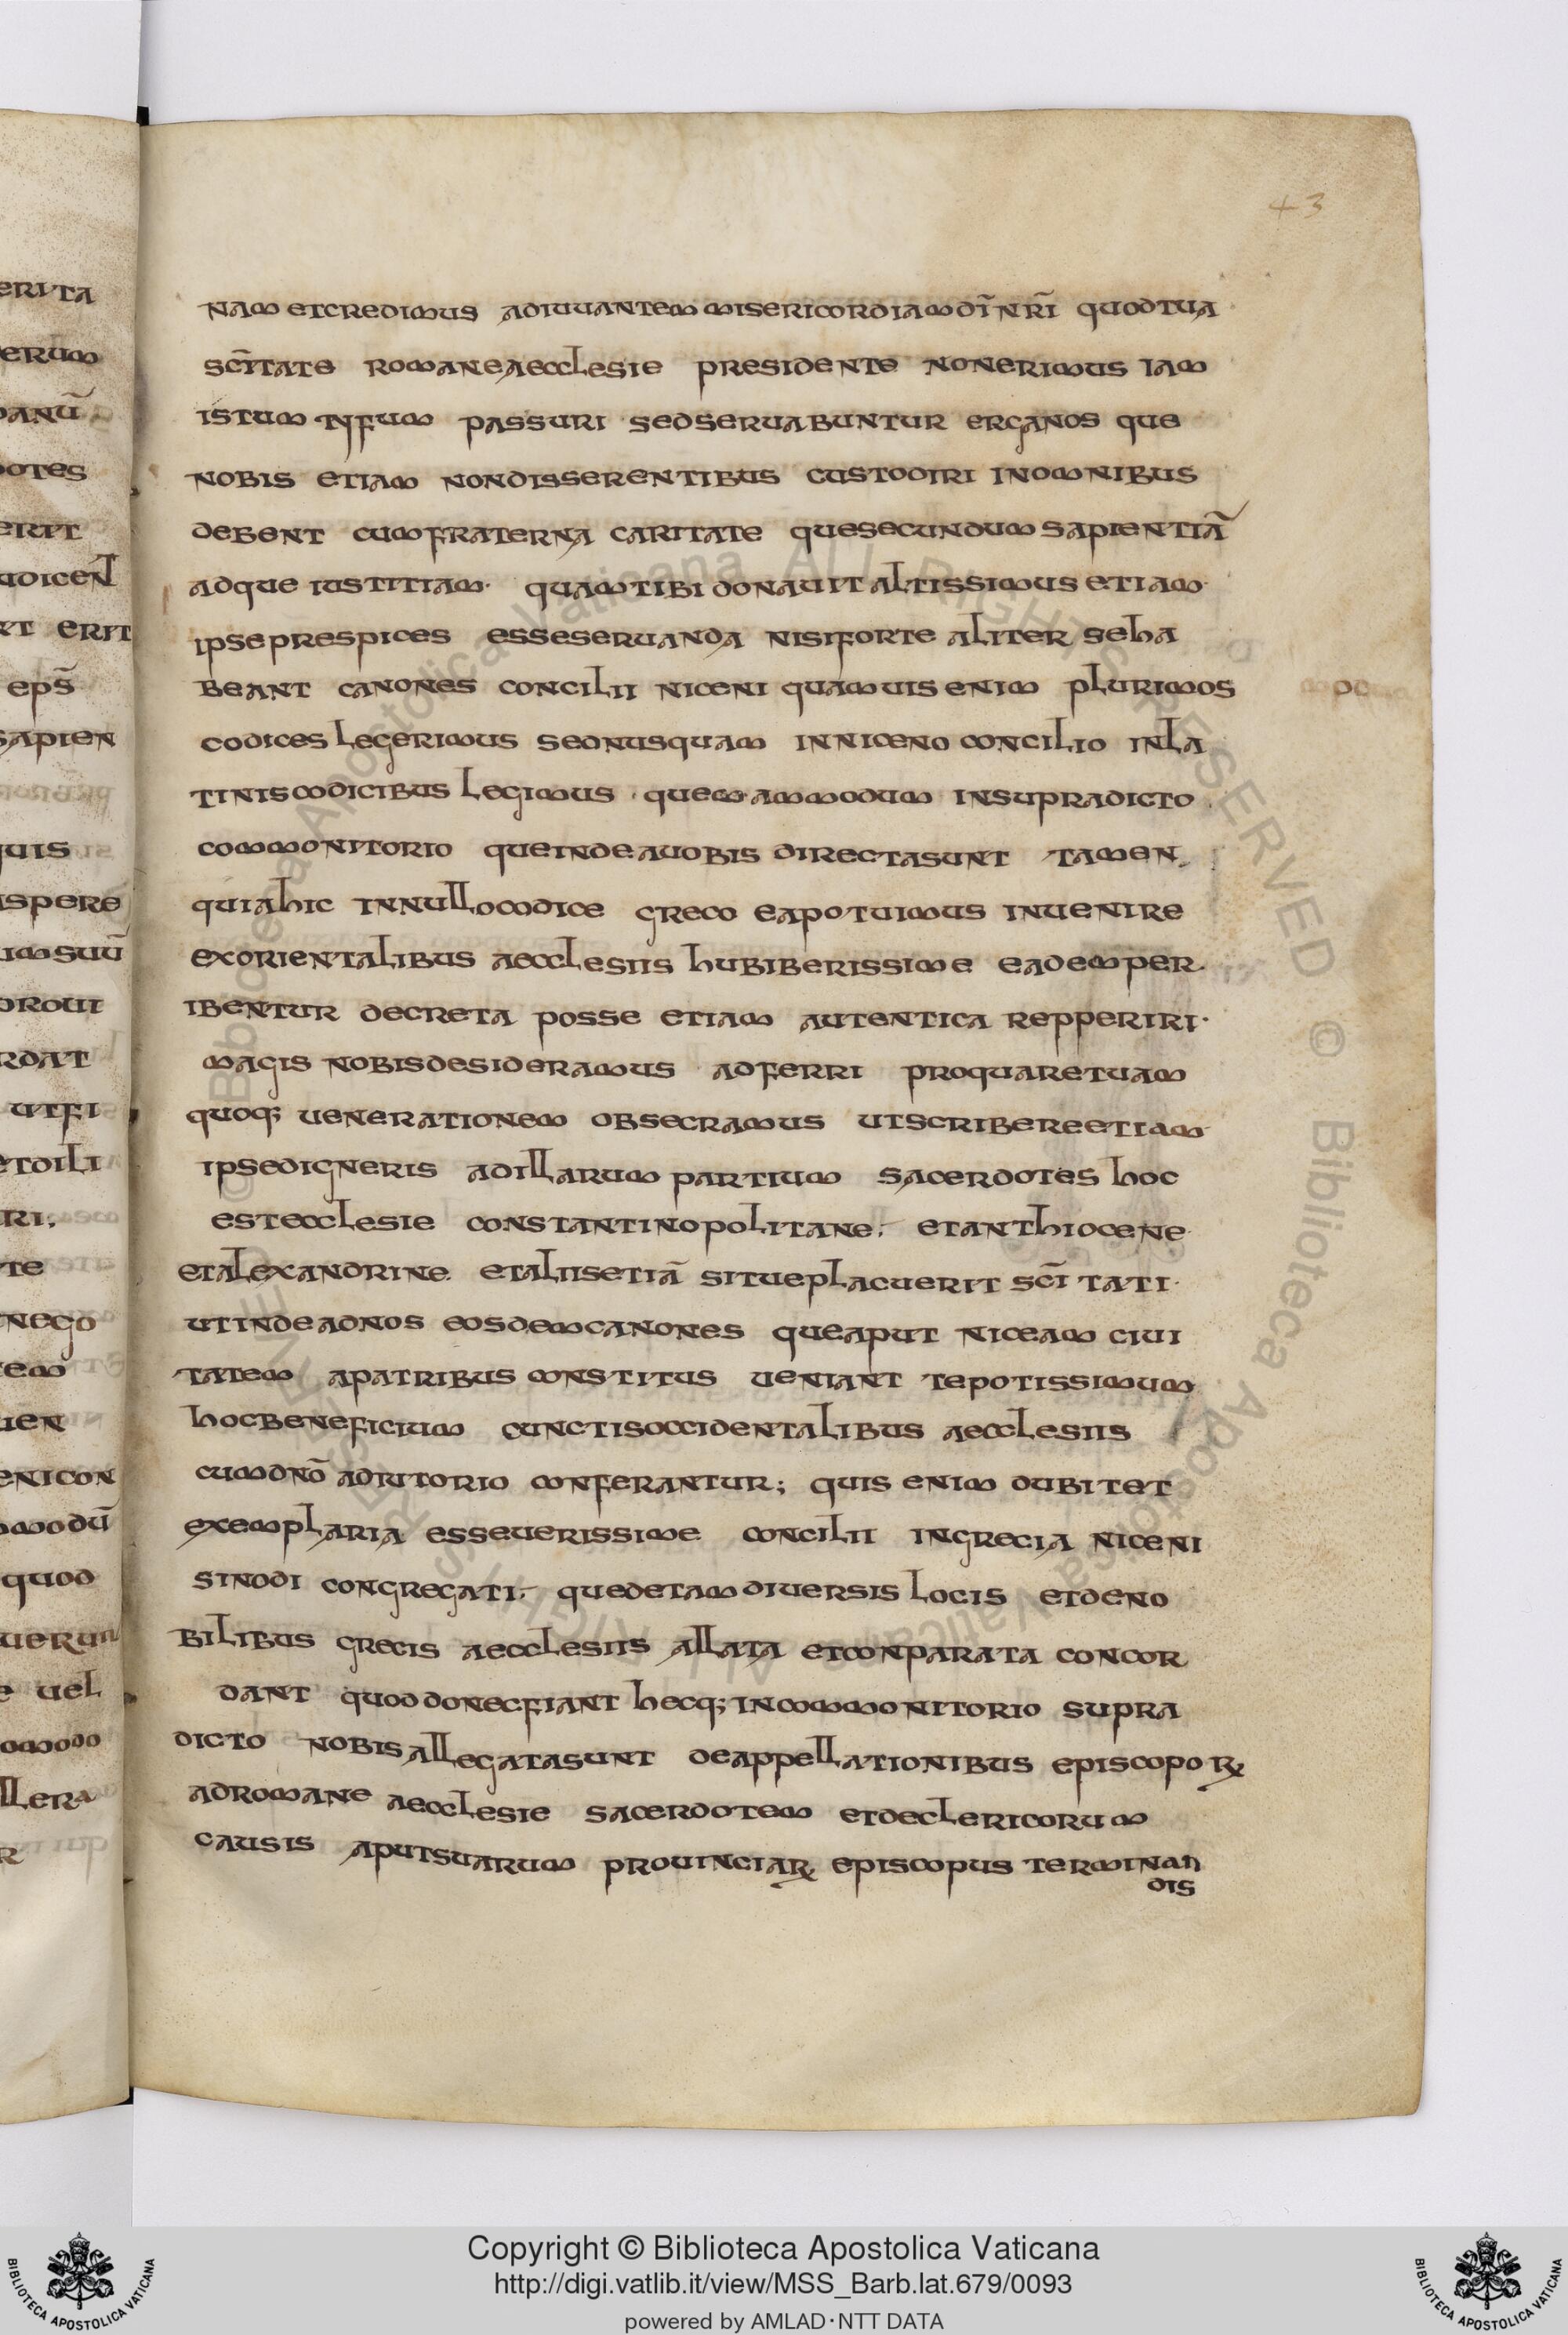 43
nam et credimus adiuuantem misericordiam dī nrī quod tua
scītate romane aecclesie presidente non erimus iam
istum tyfum passuri sed seruabuntur erga nos que
nobis etiam non disserentibus custodiri in omnibus
debent cum fraterna caritate que secundum sapientiā
adque iustitiam· quam tibi donauit altissimus etiam·
ipse prespices esse seruanda nisi forte aliter se ha
beant canones concilii niceni quamuis enim plurimos
codices legerimus sed nusquam in niceno concilio in la
tinis codicibus legimus quemammodum in supradicto
commonitorio que inde a uobis directa sunt tamen
quia hic in nullo codice greco ea potuimus inuenire
ex orientalibus aecclesiis hubi berissime eadem per
ibentur decreta posse etiam autentica repperiri·
magis nobis desideramus adferri pro qua re tuam
quoq; uenerationem obsecramus ut scribere etiam
ipse digneris ad illarum partium sacerdotes hoc
est ecclesie constantinopolitane; et anthiocene
et alexandrine et aliis etiā si tue placuerit scī tati·
ut inde ad nos eosdem canones que aput niceam ciui
tatem a patribus constitus ueniant te potissimum
hoc beneficium cunctis occidentalibus aecclesiis
cum dnō adiutorio conferantur; quis enim dubitet
exemplaria esse uerissime concilii in grecia niceni
sinodi congregati; que de tam diuersis locis et de no
bilibus grecis aecclesiis allata et conparata concor
dant quod donec fiant hecq; in commonitorio supra
dicto nobis allegata sunt de appellationibus episcopoꝝ
ad romane aecclesie sacerdotem et de clericorum
causis aput suarum prouinciaꝝ episcopus terminan
dis
Copyright © Biblioteca Apostolica Vaticana
http://digi.vatlib.it/view/MSS_Barb.lat.679/0093
powered by AMLAD·NTT DATA